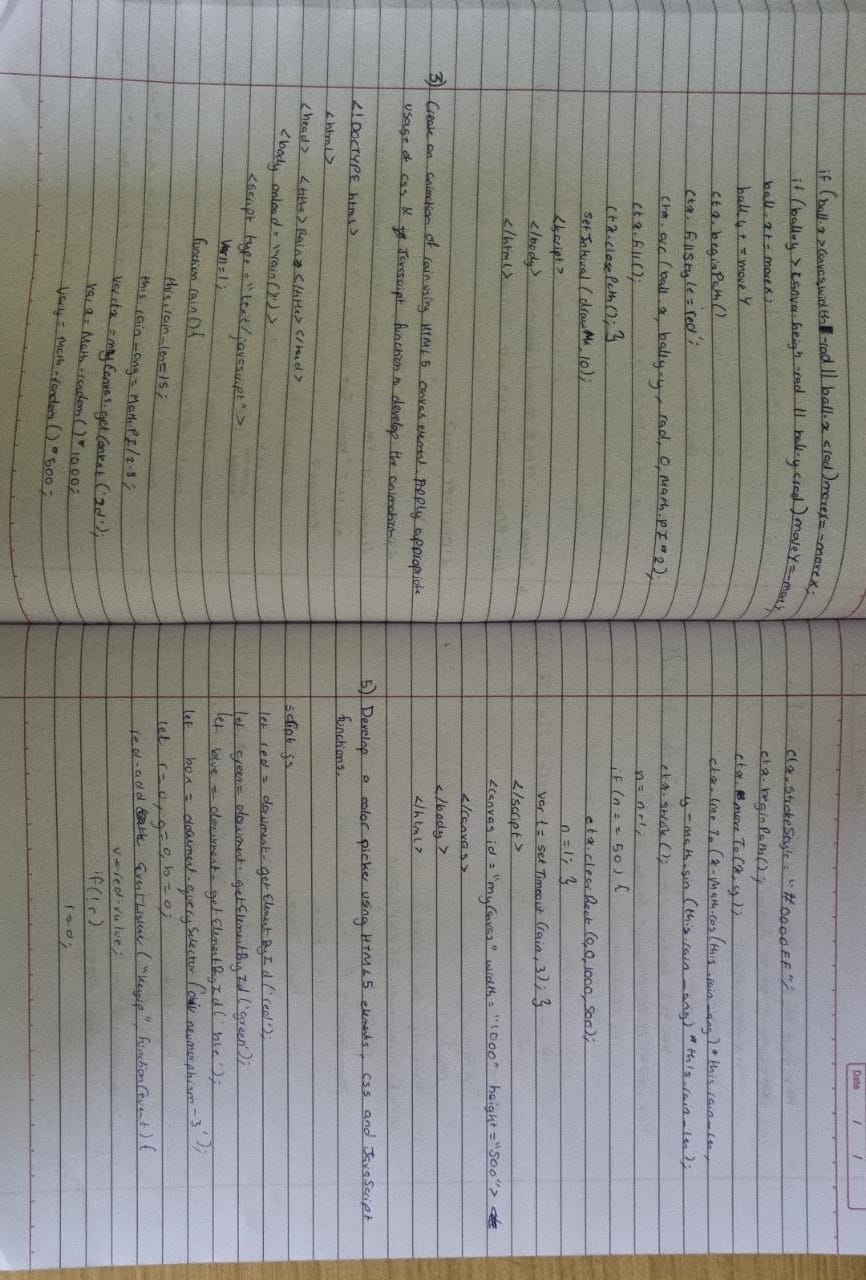 if (ball.x > canvas.width - rad || ball.x < rad) movex = -movex;
if (ball.y > canva.heigh - rad || ball.y < rad) moveY = -movey
ball.x+ = movex;
ball.y+ = moveY
ctx.beginPath()
ctx.fillStyle = 'red';
ctx.arc (ball.x, ball.y, rad, 0, Math.PI * 2);
ctx.fill();
ctx.closePath(); }
setInterval (drawMe, 10);
<script>
</body>
</html>
3) Create an animation of rain using HTML5 canvas element. Apply appropriate
usage of css & Javascript function to develop the animation.
<!DOCTYPE html>
<html>
<head> <title> Rain </title> </head>
<body onload = "rain()">
<script type = "text/javascript">
var n=1;
function rain() {
this.rain-len = 15;
this.rain-ang = Math.PI/2.8;
var ctx = myCanvas.getContext ('2d');
var x = Math.random() * 1000;
var y = Math.random() * 500;
Date / /
ctx.strokeStyle = "#0000FF";
ctx.beginPath();
ctx.moveTo(x,y);
ctx.lineTo (x-Math.cos (this.rain-ang) * this.rain-len,
y - math.sin (this.rain-ang) * this.rain-len);
ctx.stroke();
n = n+1;
if (n == 50) {
ctx.clearRect (0,0,1000,500);
n=1; }
var t = setTimeout (rain, 3); }
</script>
<canvas id = "myCanvas" width = "1000" height = "500">
</canvas>
</body>
</html>
5) Develop a color picker using HTML5 elements, css and JavaScript
functions.
script js
let red = document.getElementById('red');
let green = document.getElementById('green');
let blue = document.getElementById('ble');
let box = document.querySelector ( neumorphism-3');
let r=0, g=0, b=0;
red.add EventListner ("keyup", function(event) {
v=red.value;
if(!r)
r=0;